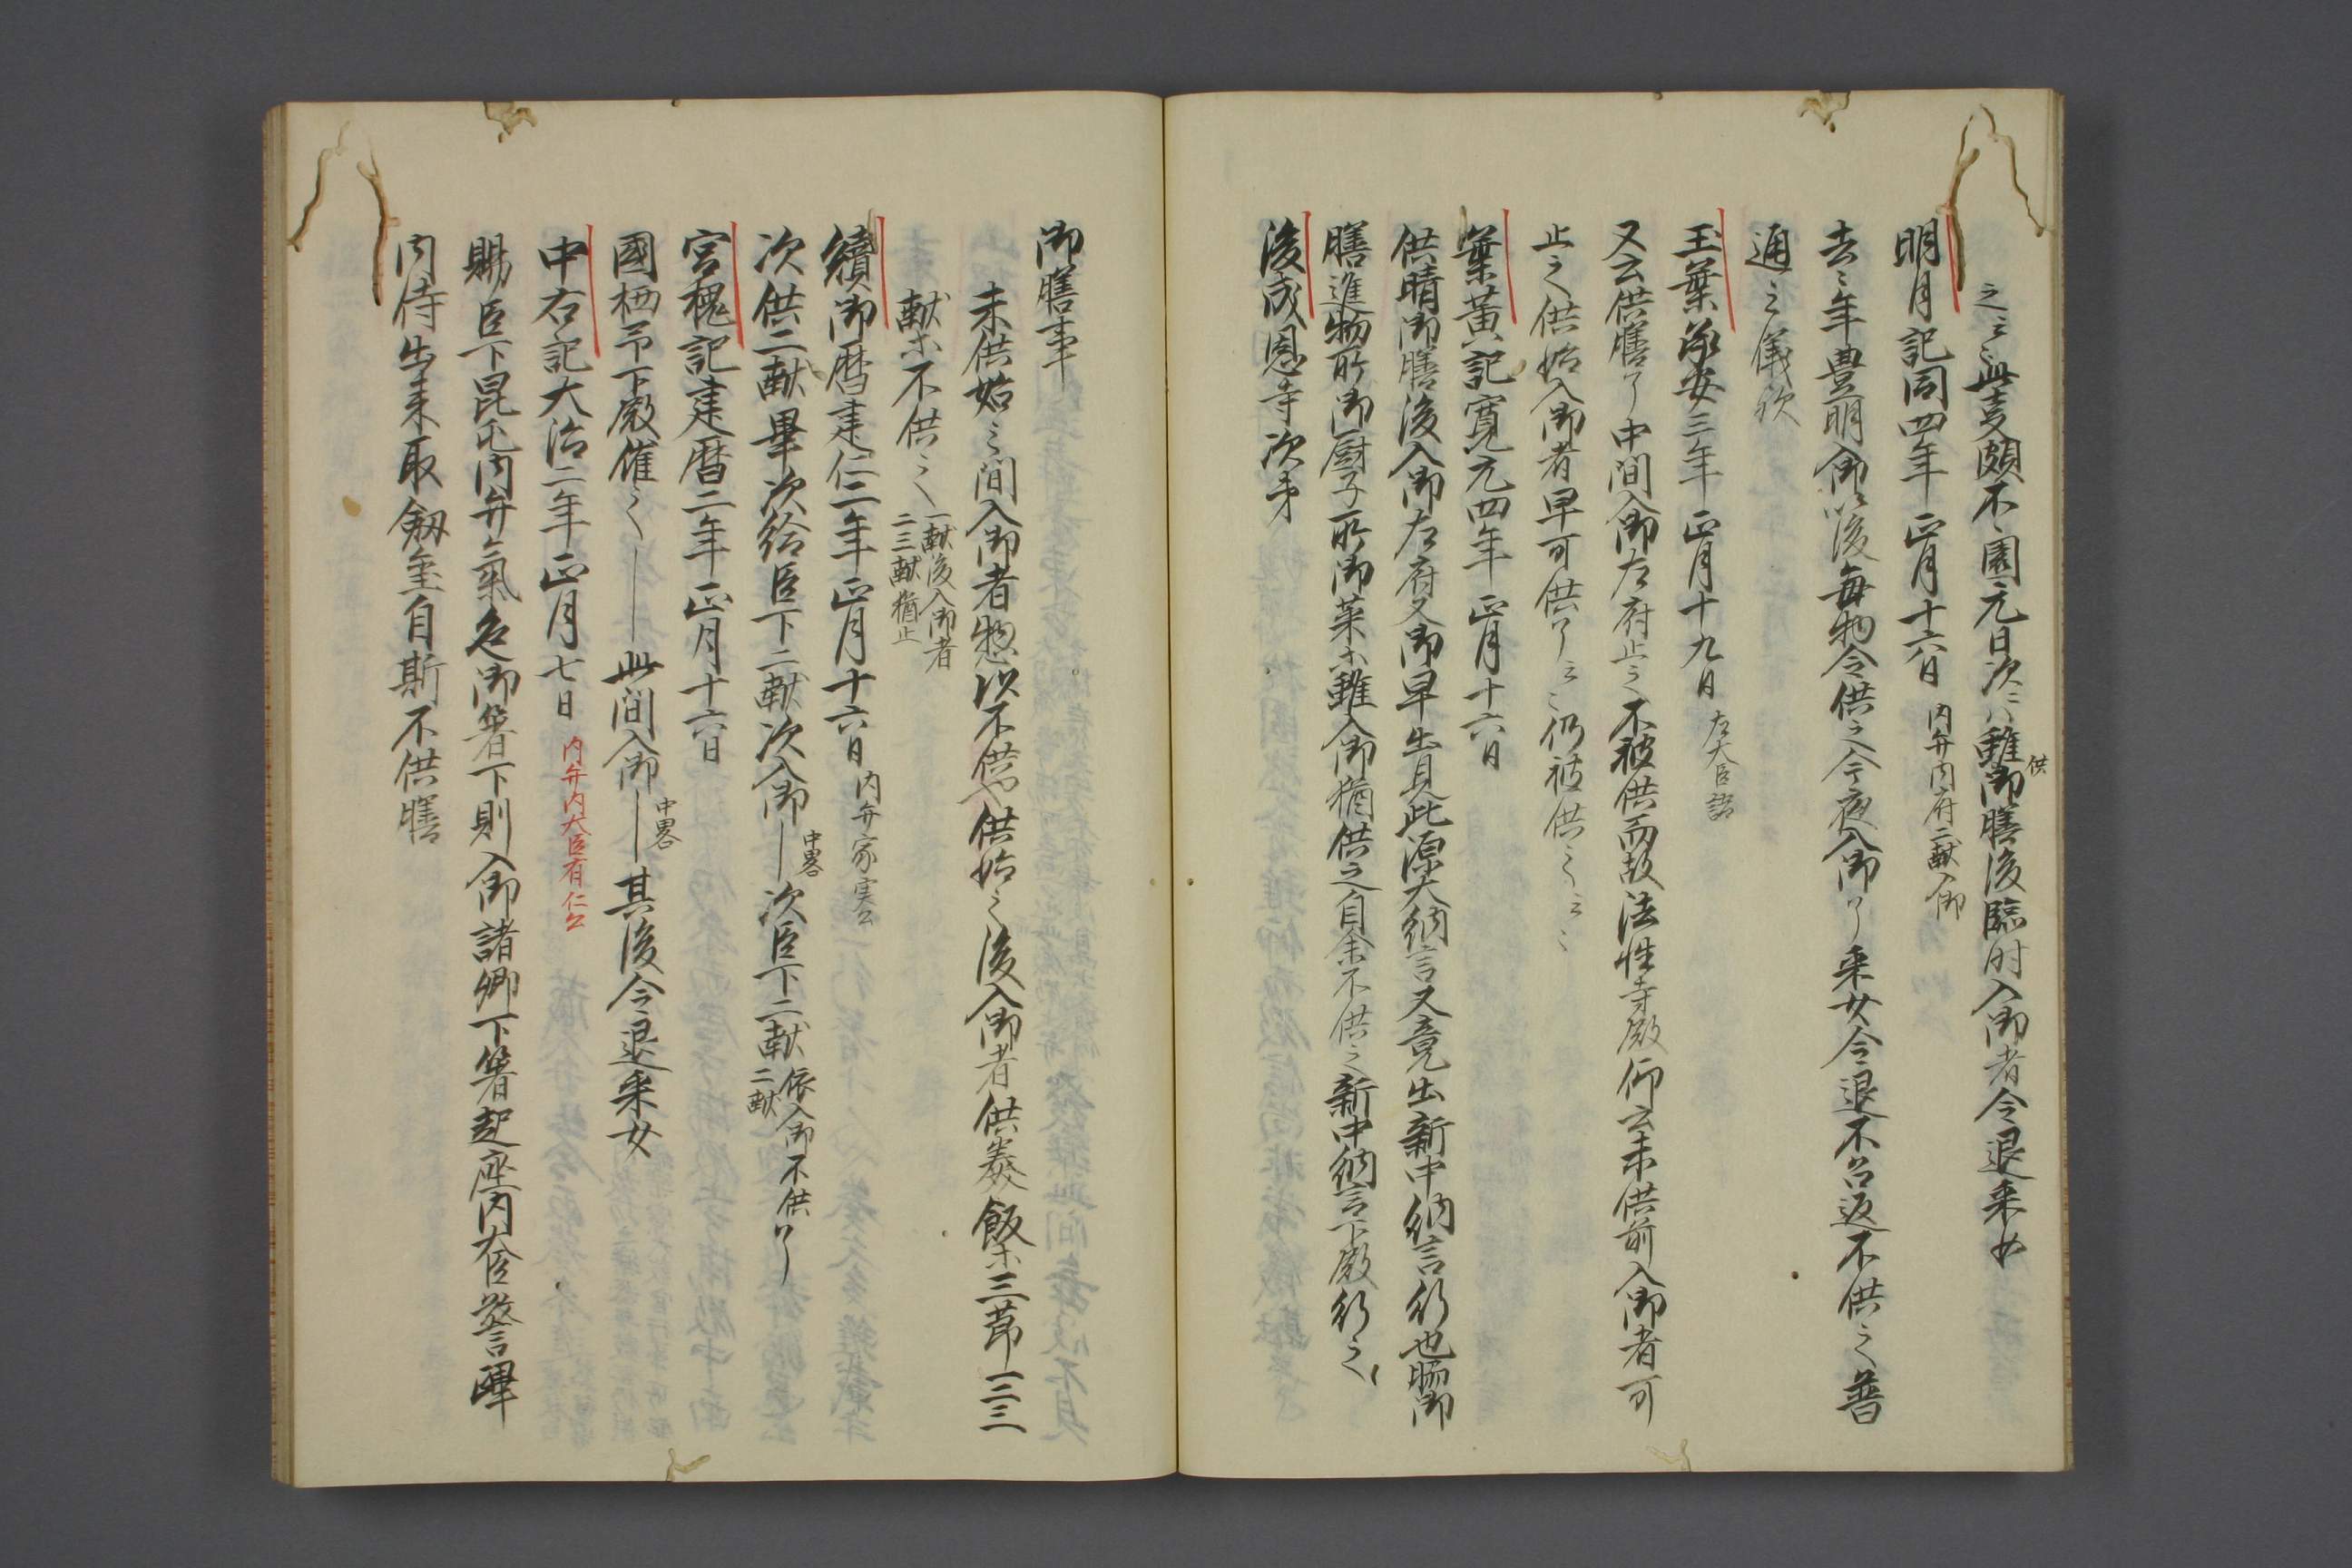 之云々此事頗不審元日次ニハ雖供御膳後臨時入御者令退采女
明月記同四年正月十六日 内弁内府二献入御
去々年豊明入御以後毎物令供之今夜入御了采女令退不召返不供之普
通之儀歟
玉葉承安三年正月十九日 左大臣語
又云供膳了中間入御左府止之不被供而故法性寺殿仰云未供前入御者可
止之供始入御者早可供了云々仍被供之云々
葉黄記寛元四年正月十六日
供晴御膳後入御左府又御早出具此源大納言又竟出新中納言行也脇御
膳進物所御厨子所御菜等雖入御猶供之自余不供之新中納言下殿行之
後成恩寺次第
御膳事
未供始之間入御者惣以不供也供始之後入御者供蒸飯等三節一二三
献等不供之 一献後入御者
二三献猶止
續御暦建仁二年正月十六日 内弁家実公
次供二献畢次給臣下二献次入御― 中畧 次臣下二献 依入御不供了―
二献
宮槐記建暦二年正月十六日
國栖弁下殿催之――此間入御― 中畧 其後令退采女
中右記大治二年正月七日 内弁内大臣有仁公
賜臣下昆屯内弁氣色御箸下則入御諸卿下箸起座内大臣警蹕
内侍出来取釼璽自斯不供膳